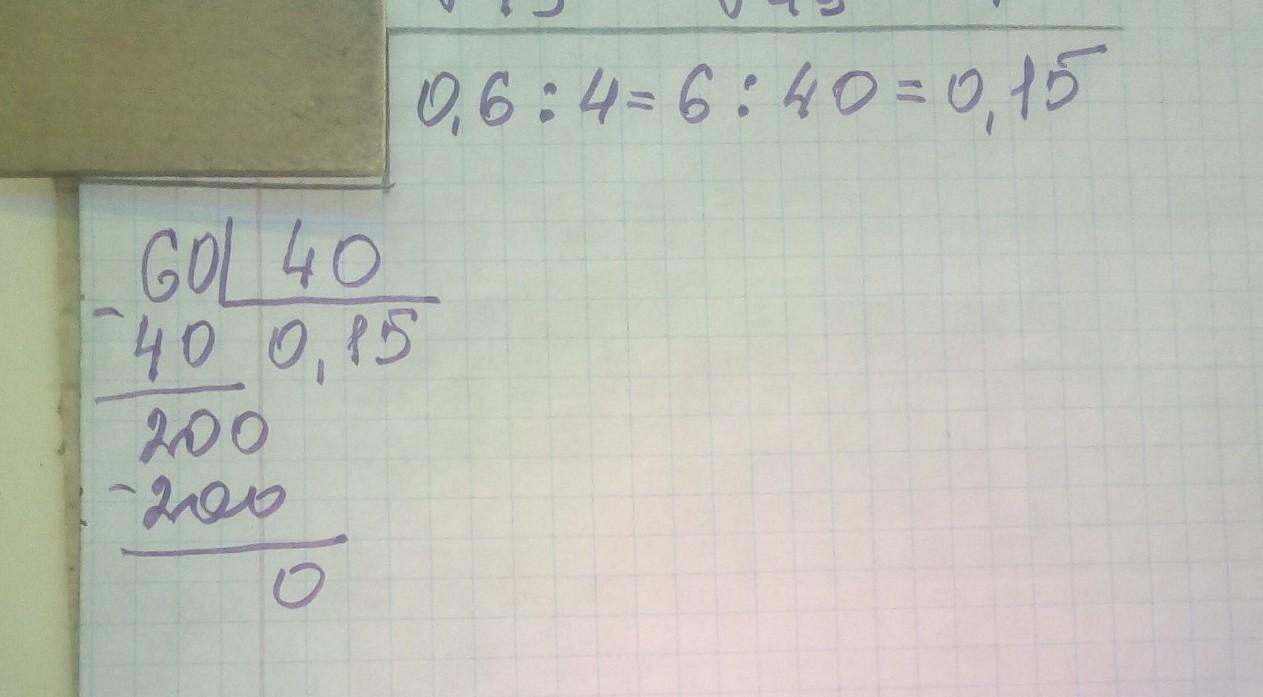 0,6 : 4 = 6 : 40 = 0,15
60 40
- 40 0,15
200
- 200
0